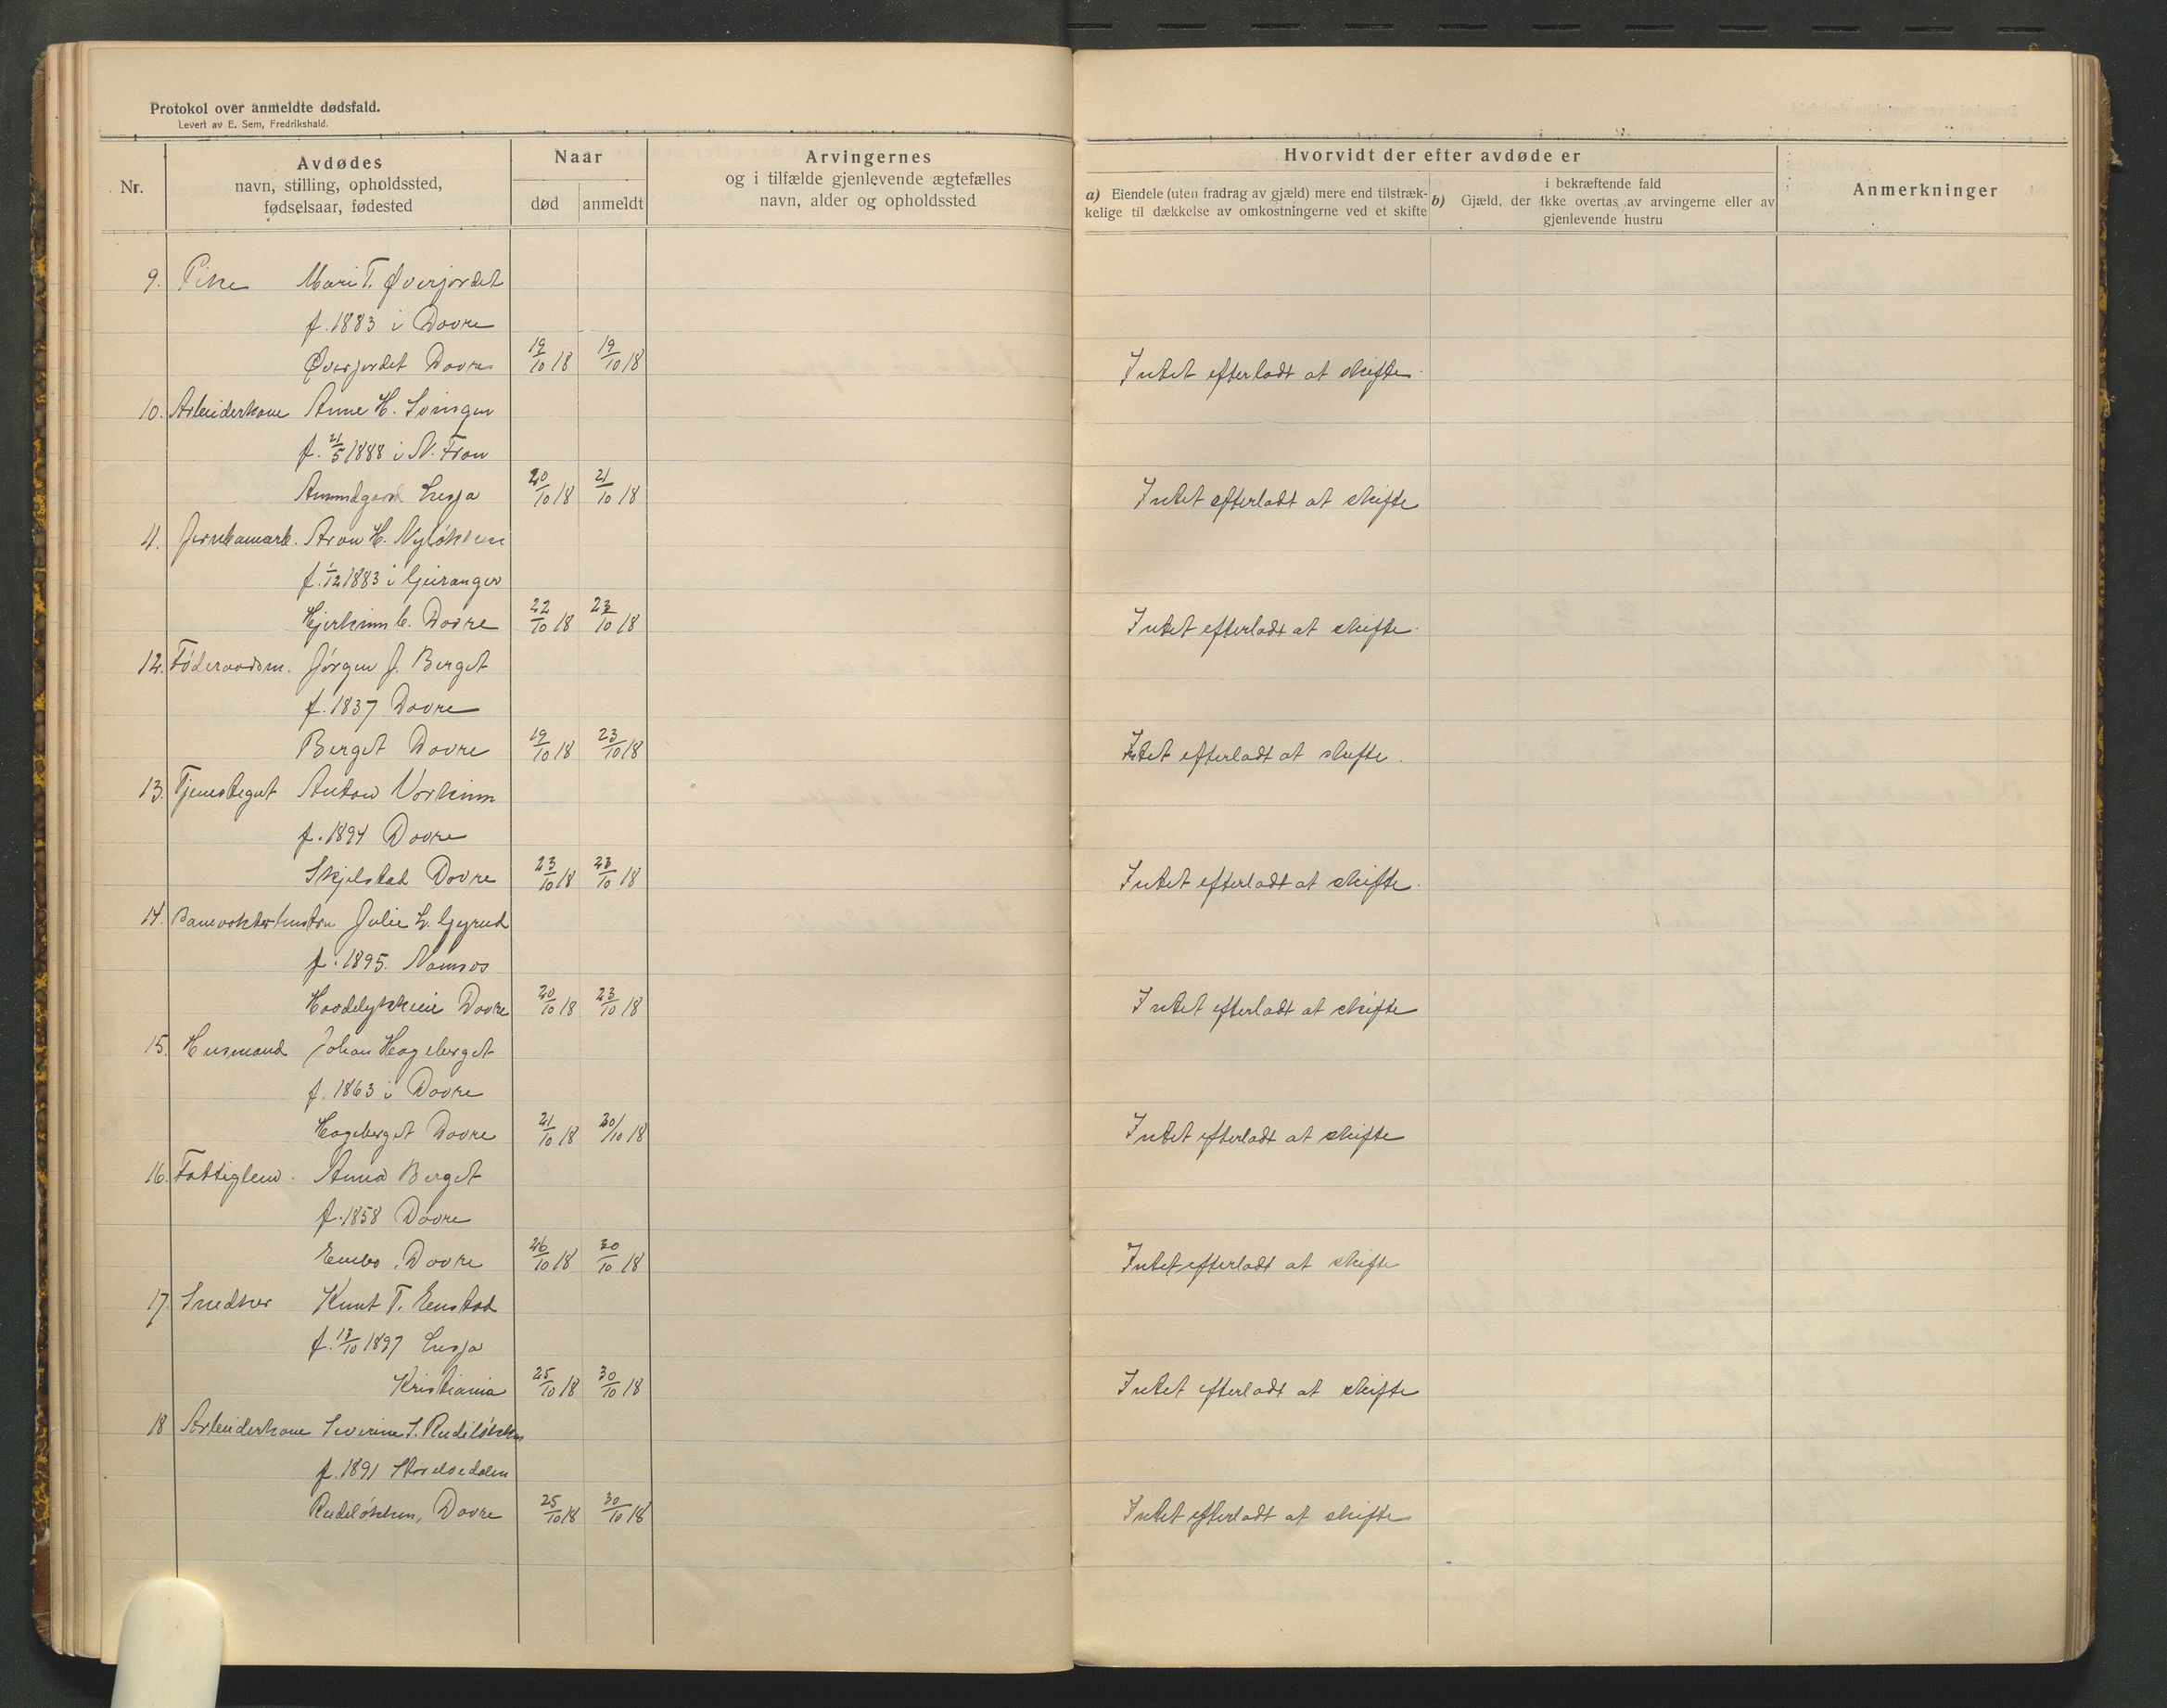 Protokol over anmeldte dødsfald.
Levert av E. Sem, Fredrikshald.
Nr.
Avdødes
navn, stilling, opholdssted,
fødselsaar, fødested
Naar
død anmeldt
Arvingernes
og i tilfælde gjenlevende ægtefælles
navn, alder og opholdssted
Hvorvidt der efter avdøde er
a) Eiendele (uten fradrag av gjæld) mere end tilstræk-
kelige til dækkelse av omkostningerne ved et skifte
i bekræftende fald
b) Gjæld, der ikke overtas av arvingerne eller av
gjenlevende hustru
Anmerkninger
9. Pike Mari T. Øverjordet
f. 1883 i Dovre
Øverjordet Dovre 19/10 18 19/10 18 Intet efterladt at skifte.
10. Arbeiderkone Anne H. Svingen
f. 21/5 1888 i N. Fron
Amundgaard Lesja 20/10 18 21/10 18 Intet efterladt at skifte
11. Jernbanearb. Aron H. Nyløkken
f. 1/12 1883 i Geiranger
Hjerkinn Dovre 22/10 18 23/10 18 Intet efterladt at skifte.
12. Føderaadsm. Jørgen J. Berget
f. 1837 Dovre
Berget Dovre 19/10 18 23/10 18 Intet efterladt at skifte.
13. Tjenestegut Anton Vorkinn
f. 1894 Dovre
Skjelstad Dovre 23/10 18 23/10 18 Intet efterladt at skifte.
14. Banevokterhustru Julie L. Gyrud
f. 1895. Namsos
Dovre 20/10 18 23/10 18 Intet efterladt at skifte
15. Husmand Johan Hageberget
f. 1863 i Dovre
Hageberget Dovre 21/10 18 30/10 18 Intet efterladt at skifte
16. Fattiglem. Anna Berget
f. 1858 Dovre
Embo, Dovre 26/10 18 30/10 18 Intet efterladt at skifte
17. Snedker Knut T. Enstad
f. 13/10 1897 Lesja
Kristiania 25/10 18 30/10 18 Intet efterladt at skifte
18 Arbeiderkone Severine S. Rudiløkken
f. 1891 Storelvedalen
Rudiløkken, Dovre 25/10 18 30/10 18 Intet efterladt at skifte